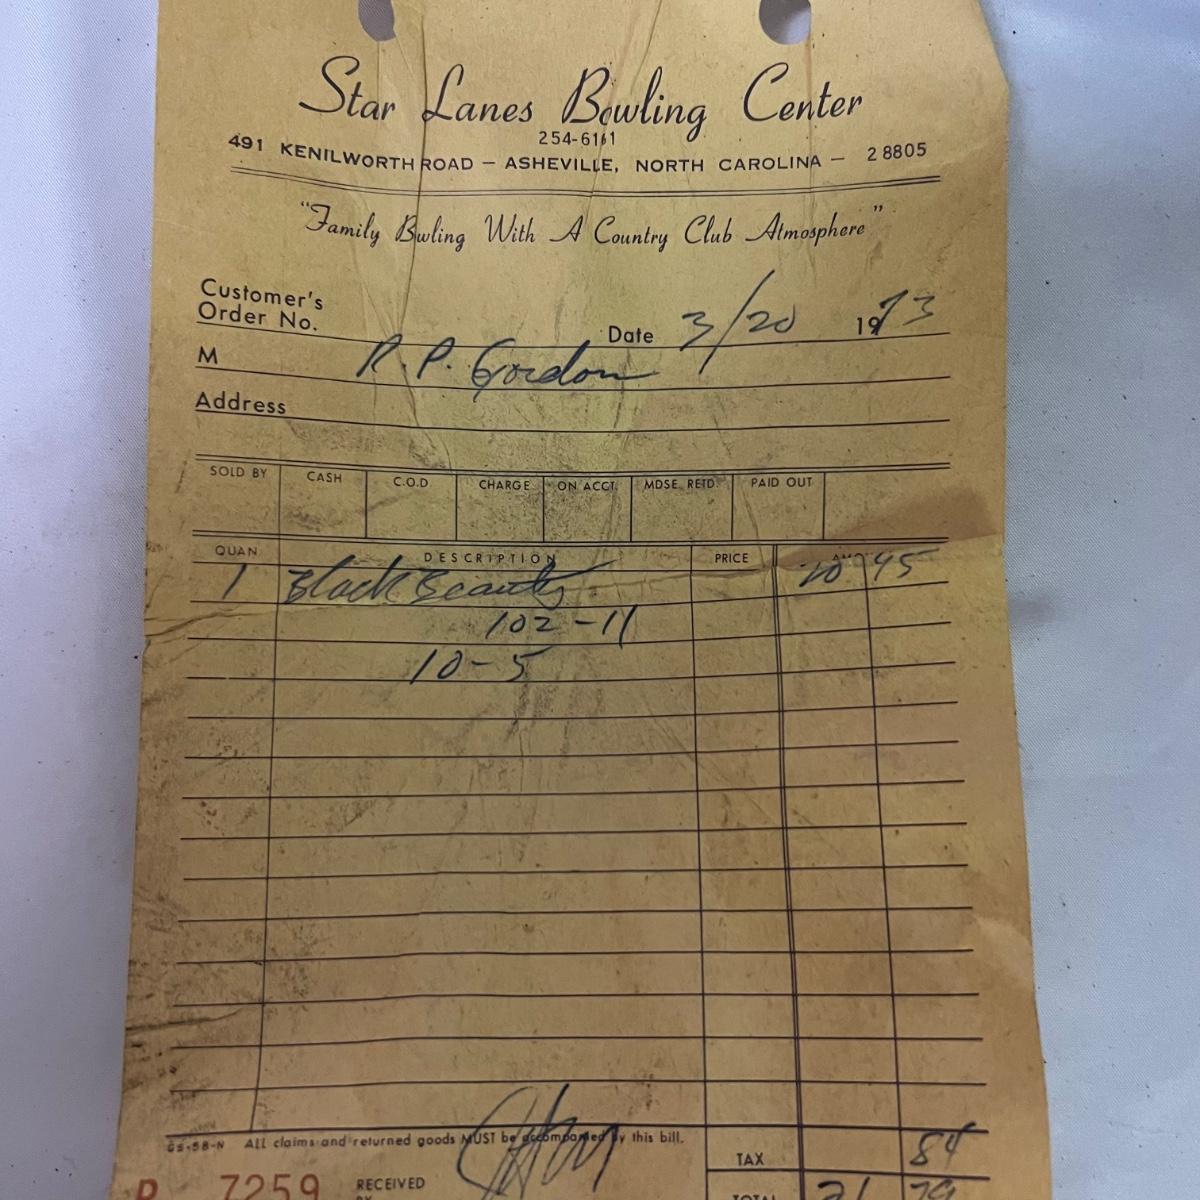 Star Lanes Bowling Center
254-6161
491 KENILWORTH ROAD — ASHEVILLE, NORTH CAROLINA — 28805
"Family Bowling With A Country Club Atmosphere"
Customer's
Order No. Date 3/20 1973
M R.P. Gordon
Address
SOLD BY CASH C.O.D CHARGE ON ACCT. MDSE. RETD. PAID OUT
QUAN DESCRIPTION PRICE
1 Black Beauty 20 95
102-11
10-5
GS-58-N ALL claims and returned goods MUST be accompanied by this bill.
TAX 84
7259 RECEIVED
TOTAL 21 79